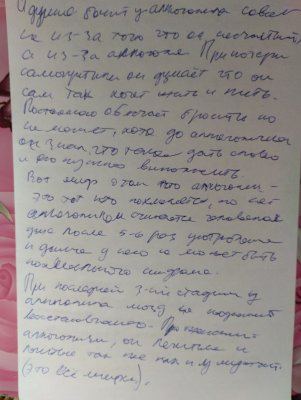 И душа болит у алкоголика совсем
не из-за того что он несчастный
а из-за алкоголя При потере
самокритики он думает что он
сам так хочет жить и пить.
Постоянно обещает бросить но
не может, хотя до алкоголизма
он знал, что такое дать слово
и его нужно выполнять.
Вот миф о том что алкоголик -
это тот кто похмеляется, но нет
алкоголиком считается человек
уже после 5-6 раз употребления
и даже у него не может быть
похмельного синдрома.
При последней 3-ий стадии у
алкоголика мозг не подлежит
восстановлению.
алкоголизм, он
так же как и у
(это все мифы).